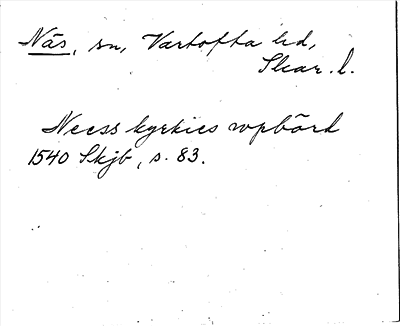 Näs, sn, Vartofta hd,
Skar. l.
Neess kyrkies vpbörd
1540 Skjb, s. 83.